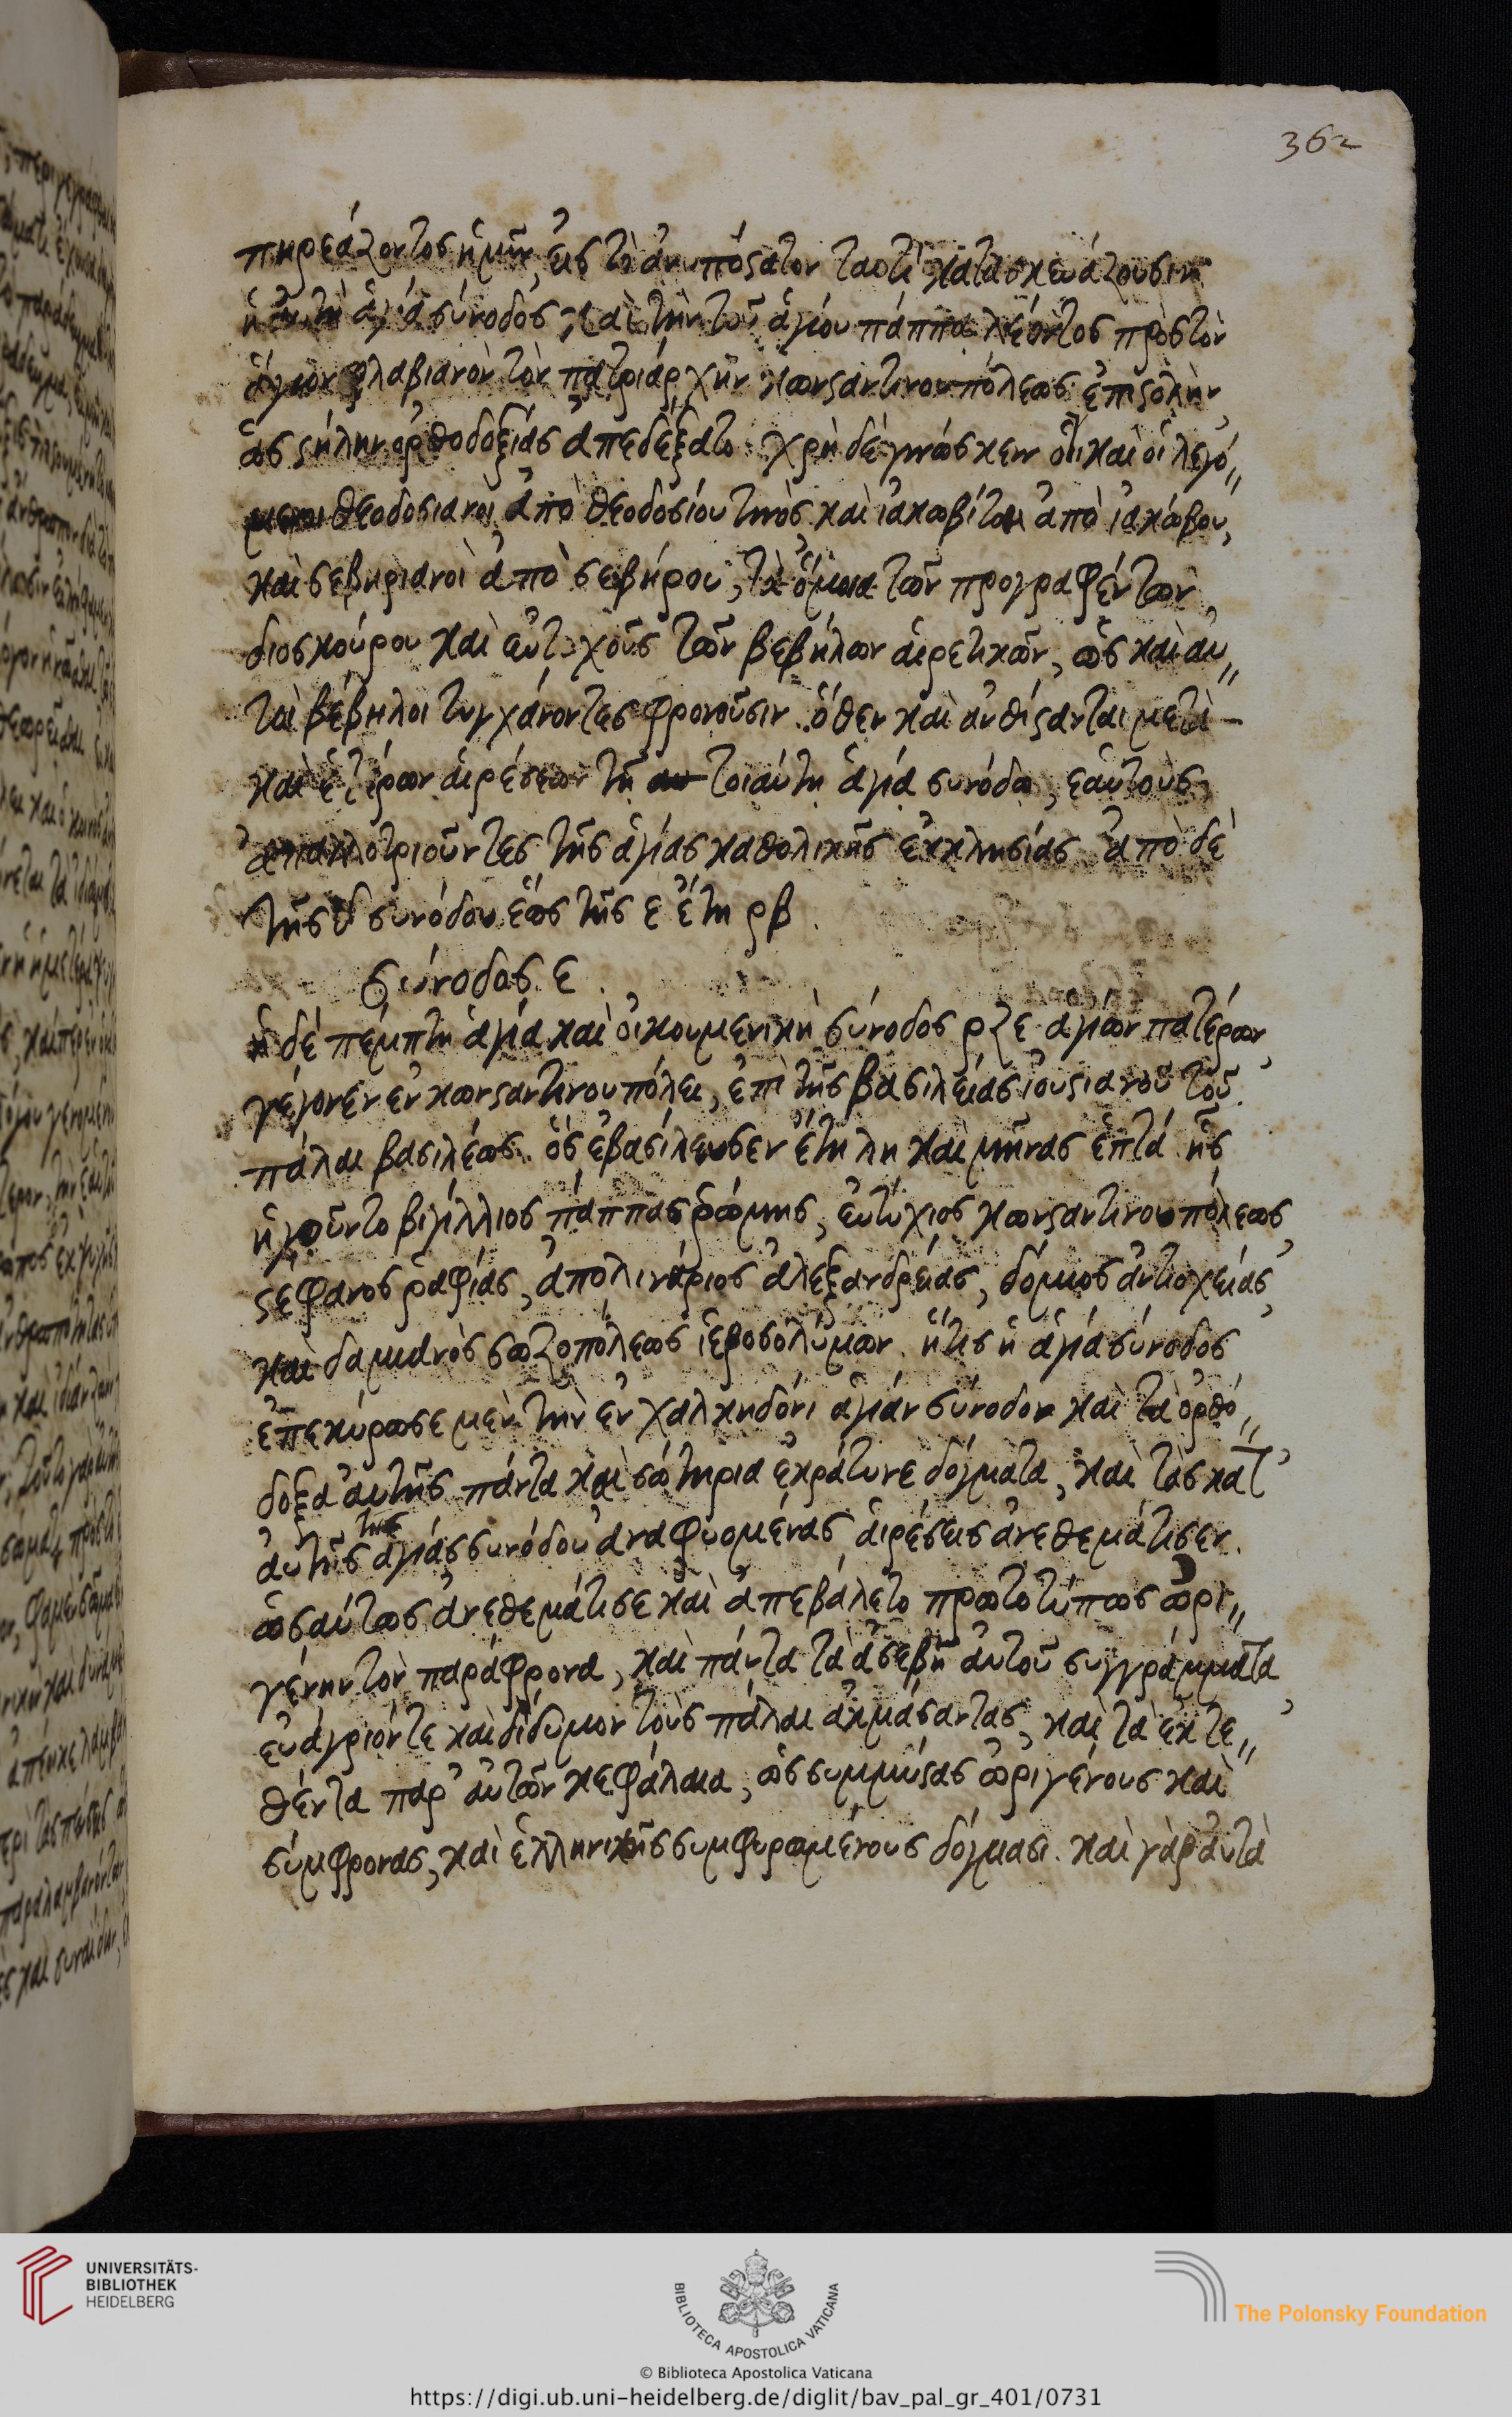 362
πηρεάζοντος ἡμῖν, εἰς τὸ ἀνυπόστατον ταυτὶ κατασκευάζουσιν
ἡ ἁγία σύνοδος, καὶ τὴν τοῦ ἁγίου πάππα λέοντος πρὸς τὸν
ἅγιον φλαβιανὸν τὸν πατριάρχην κωνσταντινουπόλεως ἐπιστολὴν,
ὡς στήλην ὀρθοδοξίας ἀπεδέξατο. χρὴ δὲ γινώσκειν ὅτι καὶ οἱ λεγό〃
μενοι θεοδοσιανοὶ ἀπὸ θεοδοσίου τινὸς καὶ ἰακωβίται ἀπὸ ἰακώβου,
καὶ σεβηριανοὶ ἀπὸ σεβήρου, τὰ ὅμοια τῶν προγραφέντων
διοσκούρου καὶ εὐτυχοῦς τῶν βεβήλων αἱρετικῶν, ὡς καὶ αυ〃
τοὶ βέβηλοι τυγχάνοντες φρονοῦσιν. ὅθεν καὶ ἀνθίστανται μετὰ –
καὶ ἑτέρων αἱρέσεων τῆ τοιαύτη ἁγία συνόδω, ἑαυτοὺς
ἀπαλλοτριοῦντες τῆς ἁγίας καθολικῆς ἐκκλησίας. ἀπὸ δὲ
τῆς δ συνόδου ἕως τῆς ε ἔτη ρβ.
σύνοδος ε.
ἡ δὲ πέμπτη ἁγία καὶ οἰκουμενικὴ σύνοδος ρξε ἁγίων πατέρων,
γέγονεν ἐν κωνσταντινουπόλει, ἐπὶ τῆς βασιλείας ἰουστιανοῦ τοῦ
πάλαι βασιλέως. ὃς ἐβασίλευσεν ἔτη λη καὶ μῆνας ἑπτά. ἧς
ἡγοῦντο βιγίλλιος πάππας ῥώμης, εὐτύχιος κωνσταντινουπόλεως,
στέφανος ῥαφίας, ἀπολινάριος ἀλεξανδρείας, δόμνος ἀντιοχείας,
καὶ δαμιανὸς σωζοπόλεως ἱεροσολύμων. ἥτις ἡ ἁγία σύνοδος
ἐπεκύρωσε μὲν τὴν ἐν χαλκηδόνι ἁγίαν σύνοδον καὶ τὰ ὀρθό〃
δοξα αὐτῆς πάντα καὶ σωτήρια ἐκράτυνε δόγματα, καὶ τὰς κατ᾽
αὐτῆς τῆς ἁγίας συνόδου ἀναφυομένας αἱρέσεις ἀνεθεμάτισεν.
ὡσαύτως ἀνεθεμάτισε καὶ ἀπεβάλετο πρωτοτύπως ὠρι〃
γένην τὸν παράφρονα, καὶ πάντα τὰ ἀσεβῆ αὐτοῦ συγγράμματα,
εὐάγριόν τε καὶ δίδυμον τοὺς πάλαι ἀκμάσαντας, καὶ τὰ ἐκτε〃
θέντα παρ᾽ αὐτῶν κεφάλαια, ὡς συμμύστας ὠριγένους καὶ
σύμφρονας, καὶ ἑλληνικῆς συμφυρωμένους δόγμασι. καὶ γὰρ αὐτὰ
UNIVERSITÄTS-
BIBLIOTHEK
HEIDELBERG
BIBLIOTECA APOSTOLICA VATICANA
The Polonsky Foundation
© Biblioteca Apostolica Vaticana
https://digi.ub.uni-heidelberg.de/diglit/bav_pal_gr_401/0731